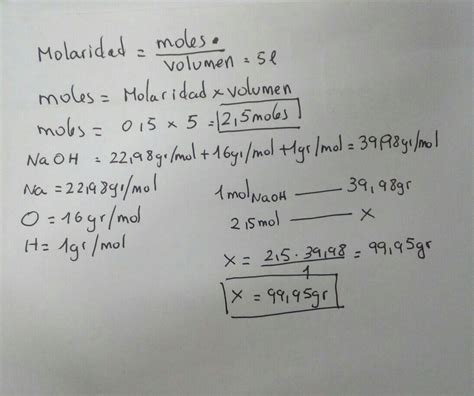 Molaridad = moles.
volumen = 5l
moles = Molaridad x volumen
moles = 0,5 x 5 = 2,5 moles
NaOH = 22,98gr/mol + 16gr/mol + 1gr/mol = 39,98gr/mol
Na = 22,98gr/mol
O = 16gr/mol
H = 1gr/mol
1 mol NaOH —— 39,98gr
2,5mol —— x
X = 2,5 . 39,98 = 99,95gr
1
X = 99,95gr